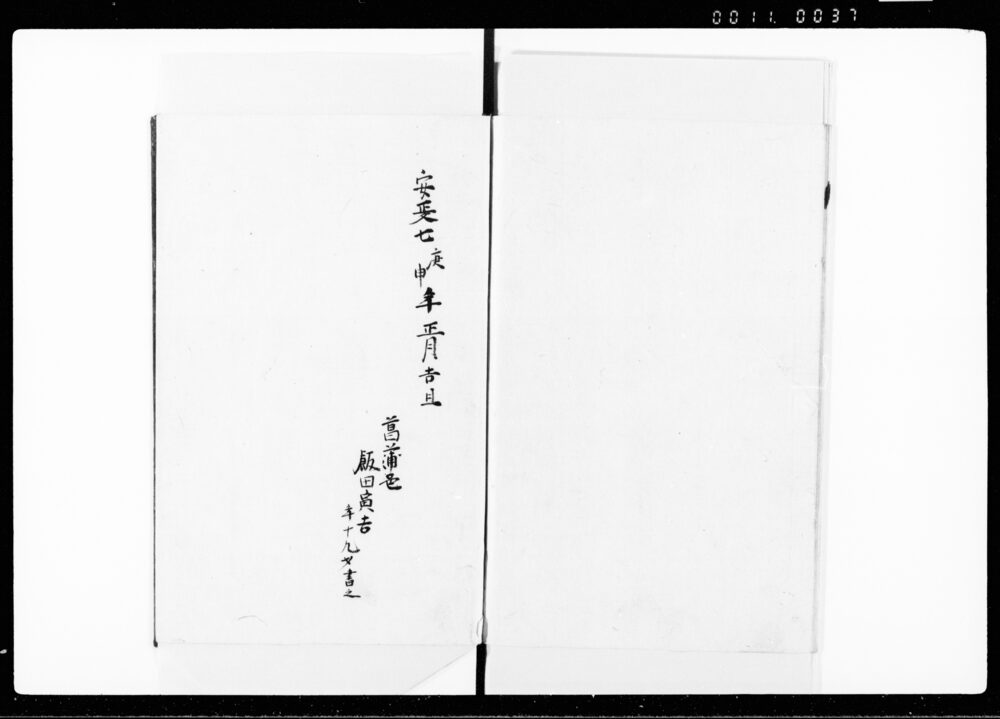 0011. 0037
安政七庚申年正月吉旦
菖蒲邑
飯田寅吉
年十九才書之